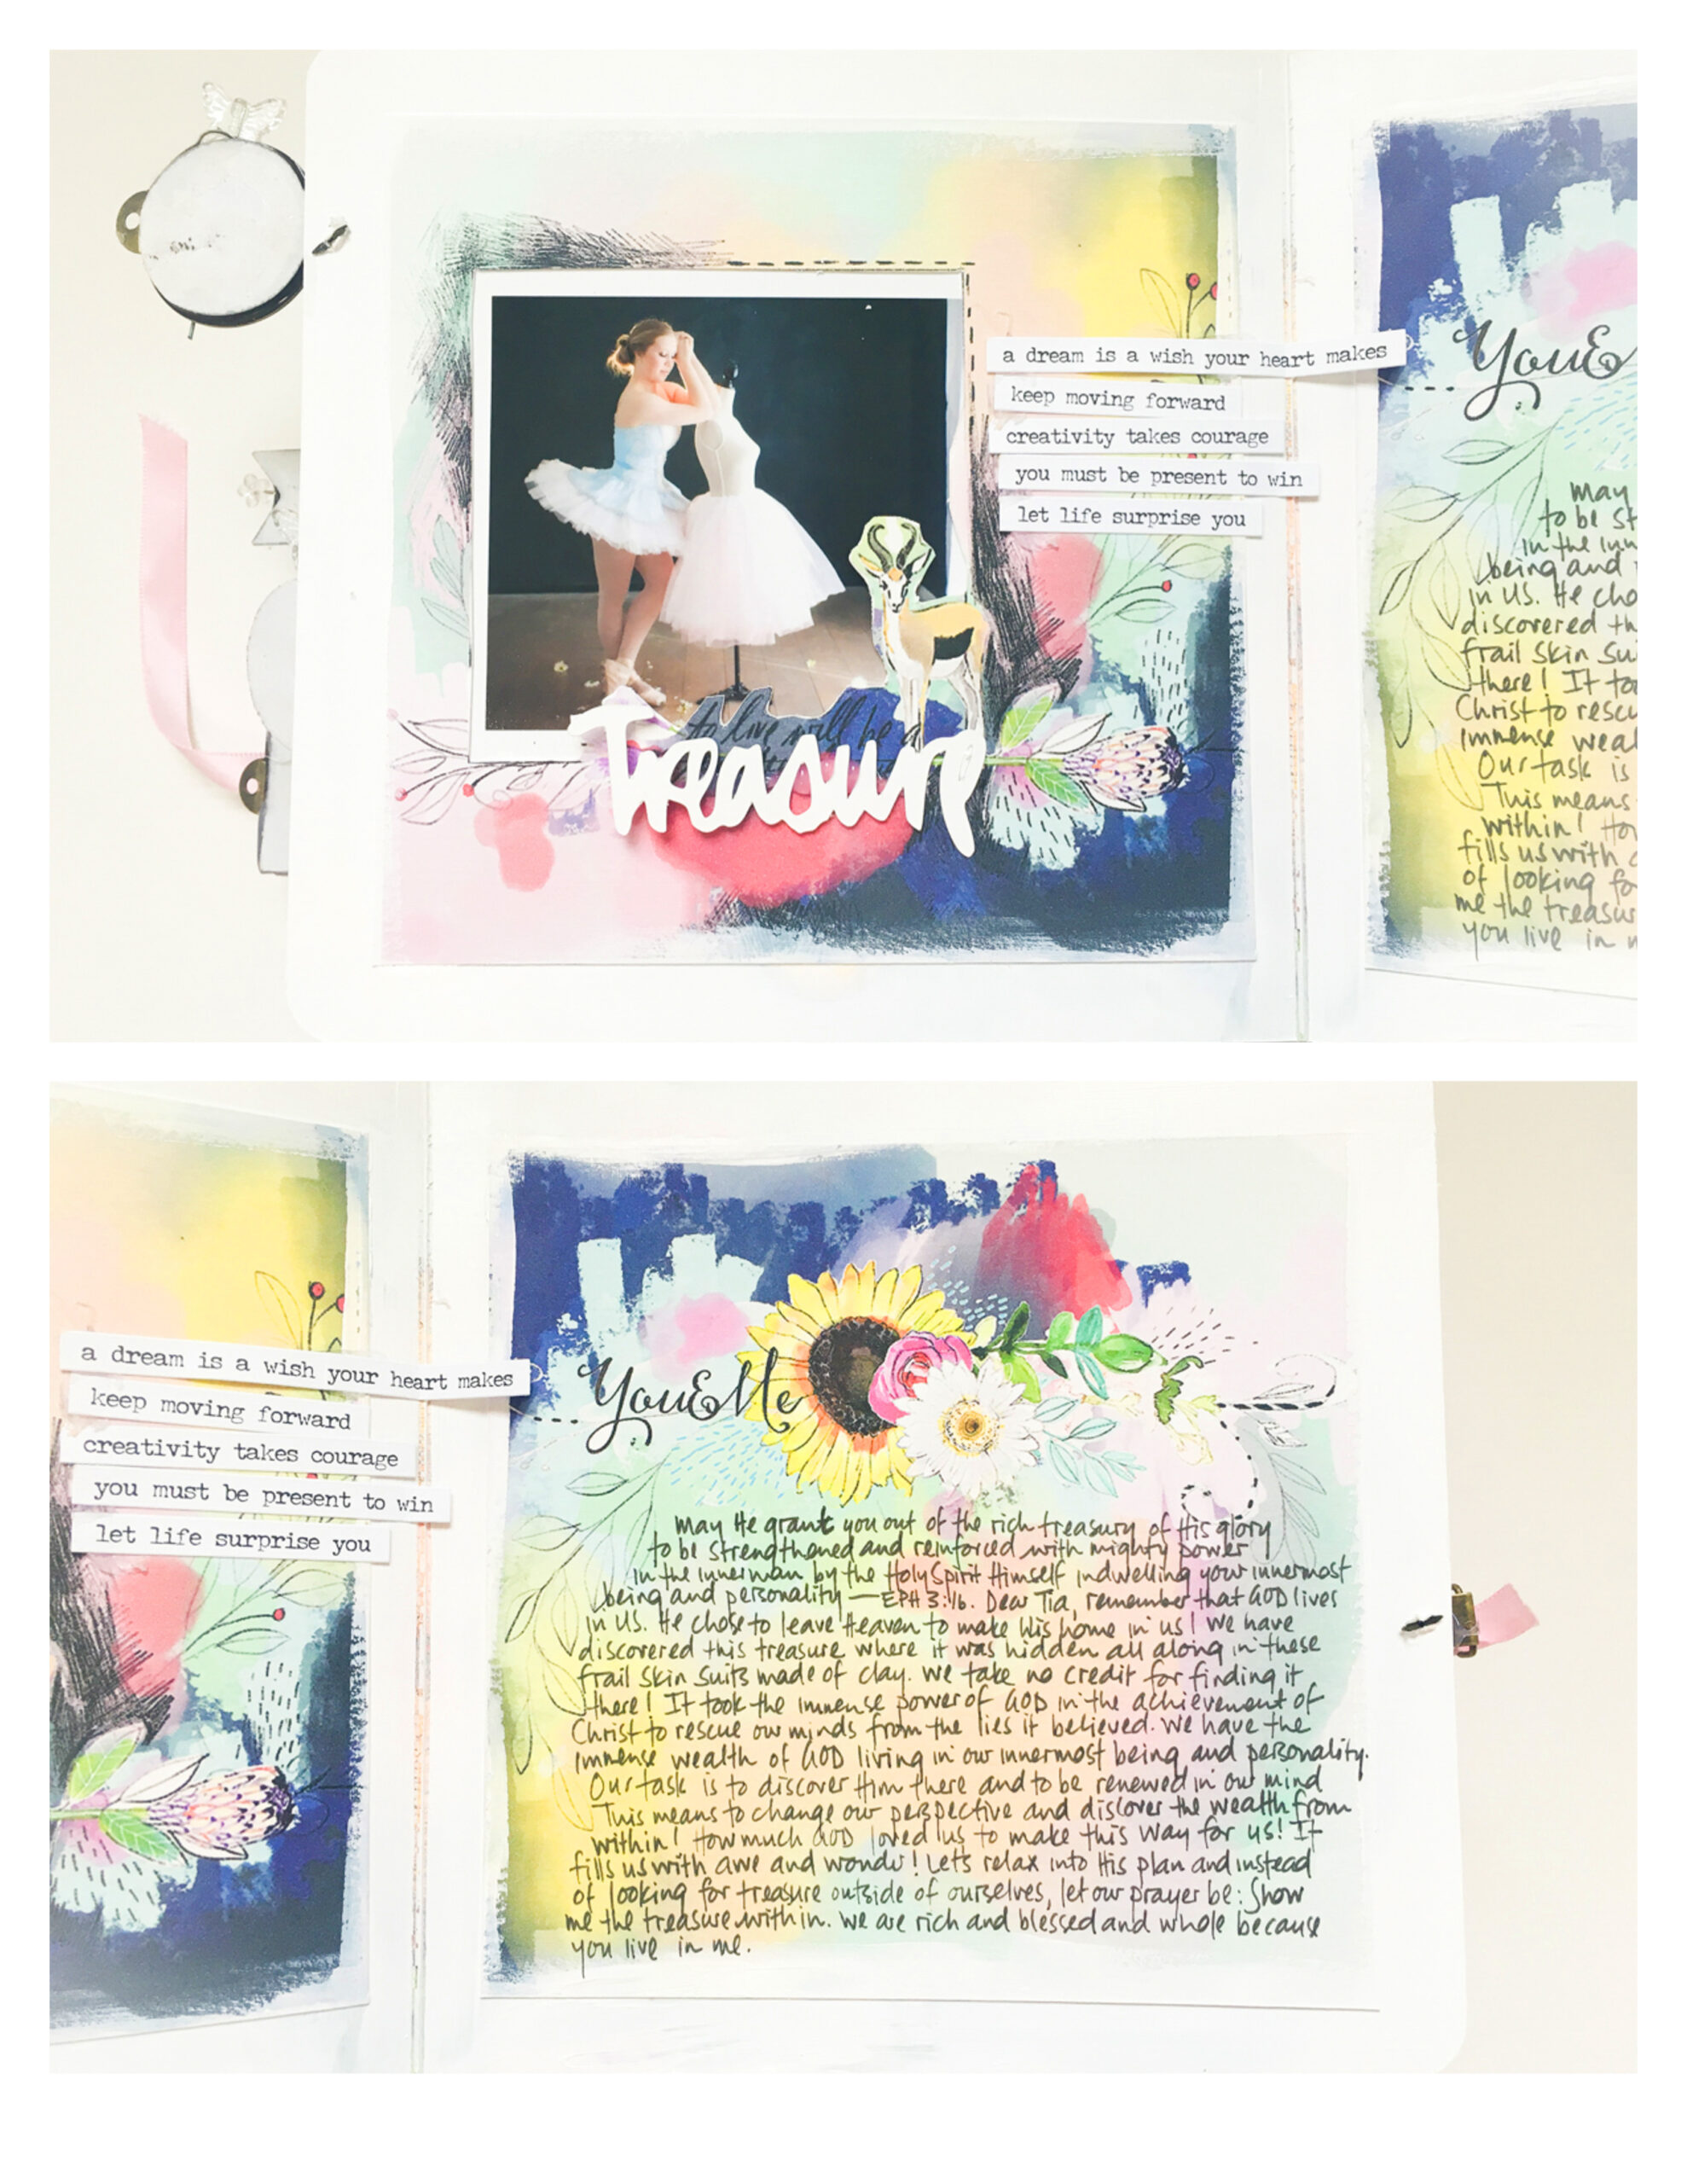 a dream is a wish your heart makes
keep moving forward
creativity takes courage
you must be present to win
let life surprise you
to live will be a
Treasure
You&
May
to be st
in the inn
being and
in us. He cho
discovered th
frail skin su
there! It too
Christ to rescu
immense weal
Our task is
This means
within! How
fills us with a
of looking fo
me the treasur
you live in m
a dream is a wish your heart makes
keep moving forward
creativity takes courage
you must be present to win
let life surprise you
You&Me
May He grant you out of the rich treasury of His glory
to be strengthened and reinforced with mighty power
in the inner man by the Holy Spirit Himself indwelling your innermost
being and personality — EPH 3:16. Dear Tia, remember that GOD lives
in us. He chose to leave Heaven to make His home in us! We have
discovered this treasure where it was hidden all along in these
frail skin suits made of clay. We take no credit for finding it
there! It took the immense power of GOD in the achievement of
Christ to rescue our minds from the lies it believed. We have the
immense wealth of GOD living in our innermost being and personality.
Our task is to discover Him there and to be renewed in our mind
This means to change our perspective and discover the wealth from
within! How much GOD loved us to make this way for us! It
fills us with awe and wonder! Let's relax into His plan and instead
of looking for treasure outside of ourselves, let our prayer be: Show
me the treasure within. We are rich and blessed and whole because
you live in me.